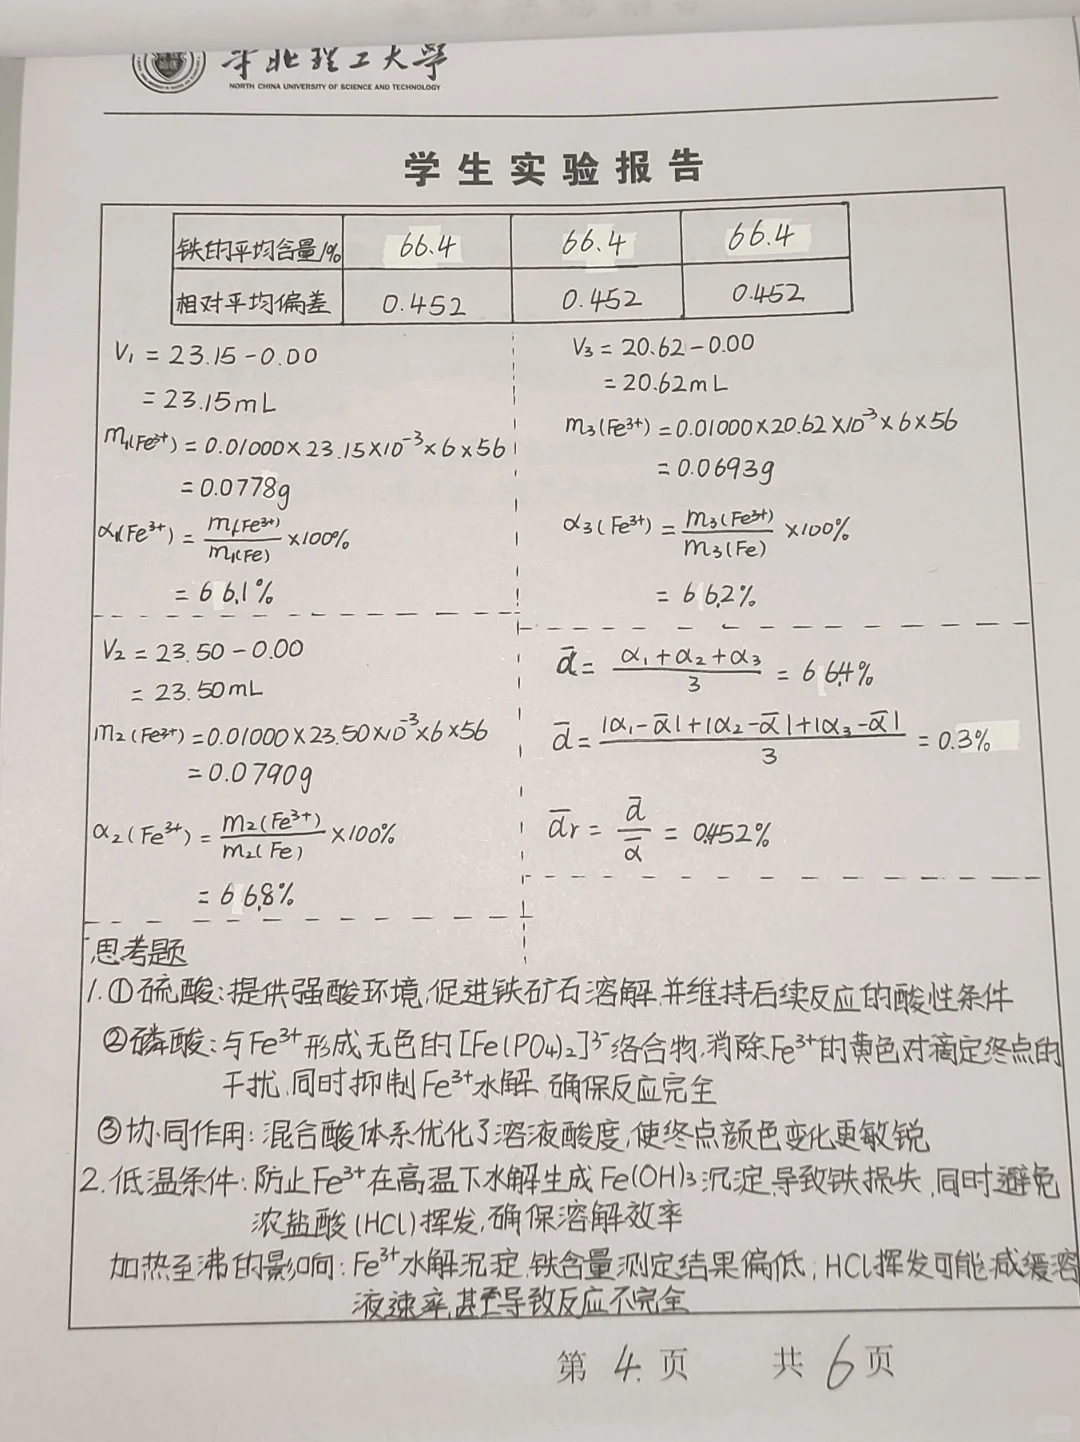 华北理工大学
NORTH CHINA UNIVERSITY OF SCIENCE AND TECHNOLOGY
学生实验报告
铁的平均含量/% 66.4 66.4 66.4
相对平均偏差 0.452 0.452 0.452
V₁ = 23.15 - 0.00
= 23.15mL
m₁(Fe³⁺) = 0.01000×23.15×10⁻³×6×56
= 0.0778g
α₁(Fe³⁺) = m₁(Fe³⁺)/m₁(Fe) ×100%
= 66.1%
V₂ = 23.50 - 0.00
= 23.50mL
m₂(Fe³⁺) = 0.01000×23.50×10⁻³×6×56
= 0.0790g
α₂(Fe³⁺) = m₂(Fe³⁺)/m₂(Fe) ×100%
= 66.8%
V₃ = 20.62 - 0.00
= 20.62mL
m₃(Fe³⁺) = 0.01000×20.62×10⁻³×6×56
= 0.0693g
α₃(Fe³⁺) = m₃(Fe³⁺)/m₃(Fe) ×100%
= 66.2%
ᾱ = (α₁+α₂+α₃)/3 = 66.4%
d̄ = (|α₁-ᾱ|+|α₂-ᾱ|+|α₃-ᾱ|)/3 = 0.3%
d̄r = d̄/ᾱ = 0.452%
思考题
1. ①硫酸:提供强酸环境,促进铁矿石溶解,并维持后续反应的酸性条件
②磷酸:与Fe³⁺形成无色的[Fe(PO₄)₂]³⁻络合物,消除Fe³⁺的黄色对滴定终点的
干扰,同时抑制Fe³⁺水解,确保反应完全
③协同作用:混合酸体系优化了溶液酸度,使终点颜色变化更敏锐
2. 低温条件:防止Fe³⁺在高温下水解生成Fe(OH)₃沉淀,导致铁损失,同时避免
浓盐酸(HCl)挥发,确保溶解效率
加热至沸的影响:Fe³⁺水解沉淀,铁含量测定结果偏低;HCl挥发可能减缓溶
液速率,甚至导致反应不完全
第 4 页 共 6 页